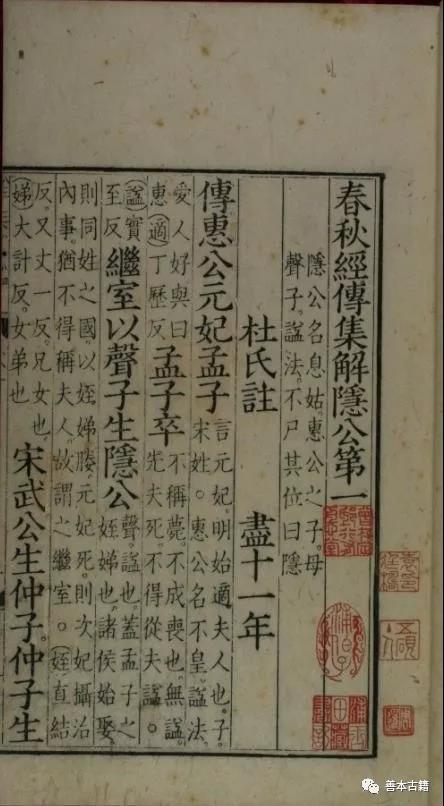 春秋經傳集解隱公第一
隱公名息姑。惠公之子。母
聲子。謚法。不尸其位曰隱
杜氏註 盡十一年
傳惠公元妃孟子
言元妃。明始適夫人也。子。
宋姓。惠公名不皇。謚法。
愛人好與曰
惠適丁歷反
孟子卒
不稱薨。不成喪也。無謚。
先夫死。不得從夫謚。
謚實
至反
繼室以聲子生隱公
聲。謚也。蓋孟子之
姪娣也。諸侯始娶。
則同姓之國。以姪娣媵。元妃死。則次妃攝治
內事。猶不得稱夫人。故謂之繼室。姪直結
反。又丈一反。兄女也
娣大計反。女弟也
宋武公生仲子。仲子生
善本古籍